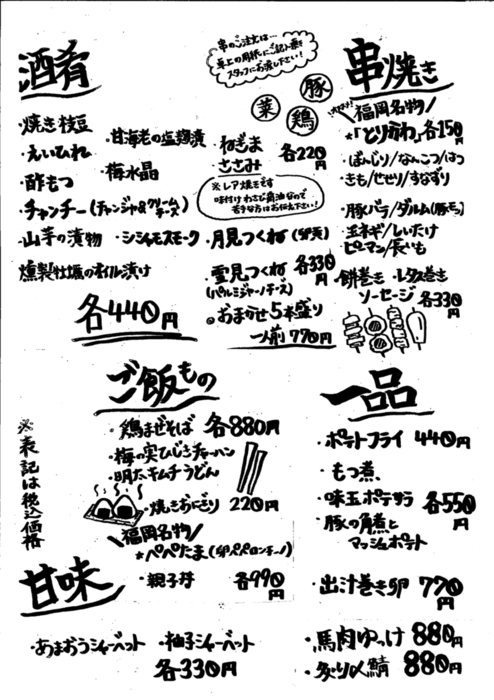 酒肴
・焼き枝豆
・えいひれ
・酢もつ
・チャンチー(チャンジャ&クリームチーズ)
・山芋の漬物
・燻製牡蠣のオイル漬け
・甘海老の塩麹漬
・梅水晶
・シシャモスモーク
各440円
串のご注文は…
卓上の用紙にご記入の上
スタッフにお渡し下さい!
豚
鶏
菜
串焼き
オススメ!
福岡名物
★「とりかわ」各150円
・ねぎま
・ささみ
各220円
※レア焼きです
味付けわさび醤油なので
苦手な方はお伝え下さい!
・月見つくね(卵黄)
・雪見つくね
(パルミジャーノチーズ)
各330円
◎おまかせ5本盛り
一人前770円
・ぼんじり/なんこつ/はつ
・きも/せせり/すなずり
・豚バラ/ダルム(豚モツ)
・玉ネギ/しいたけ
・ピーマン/長いも
・餅巻き・レタス巻き
・ソーセージ
各330円
ご飯もの
・鶏まぜそば 各880円
・梅の実ひじきチャーハン
・明太キムチうどん
・焼きおにぎり 220円
福岡名物
★ペペたま(卵ペペロンチーノ)
・親子丼
各990円
※表記は税込価格
甘味
・あまおうシャーベット
・柚子シャーベット
各330円
一品
・ポテトフライ 440円
・もつ煮
・味玉ポテサラ
・豚の角煮と
マッシュポテト
各550円
・出汁巻き卵 770円
・馬肉ゆっけ 880円
・炙り〆鯖 880円